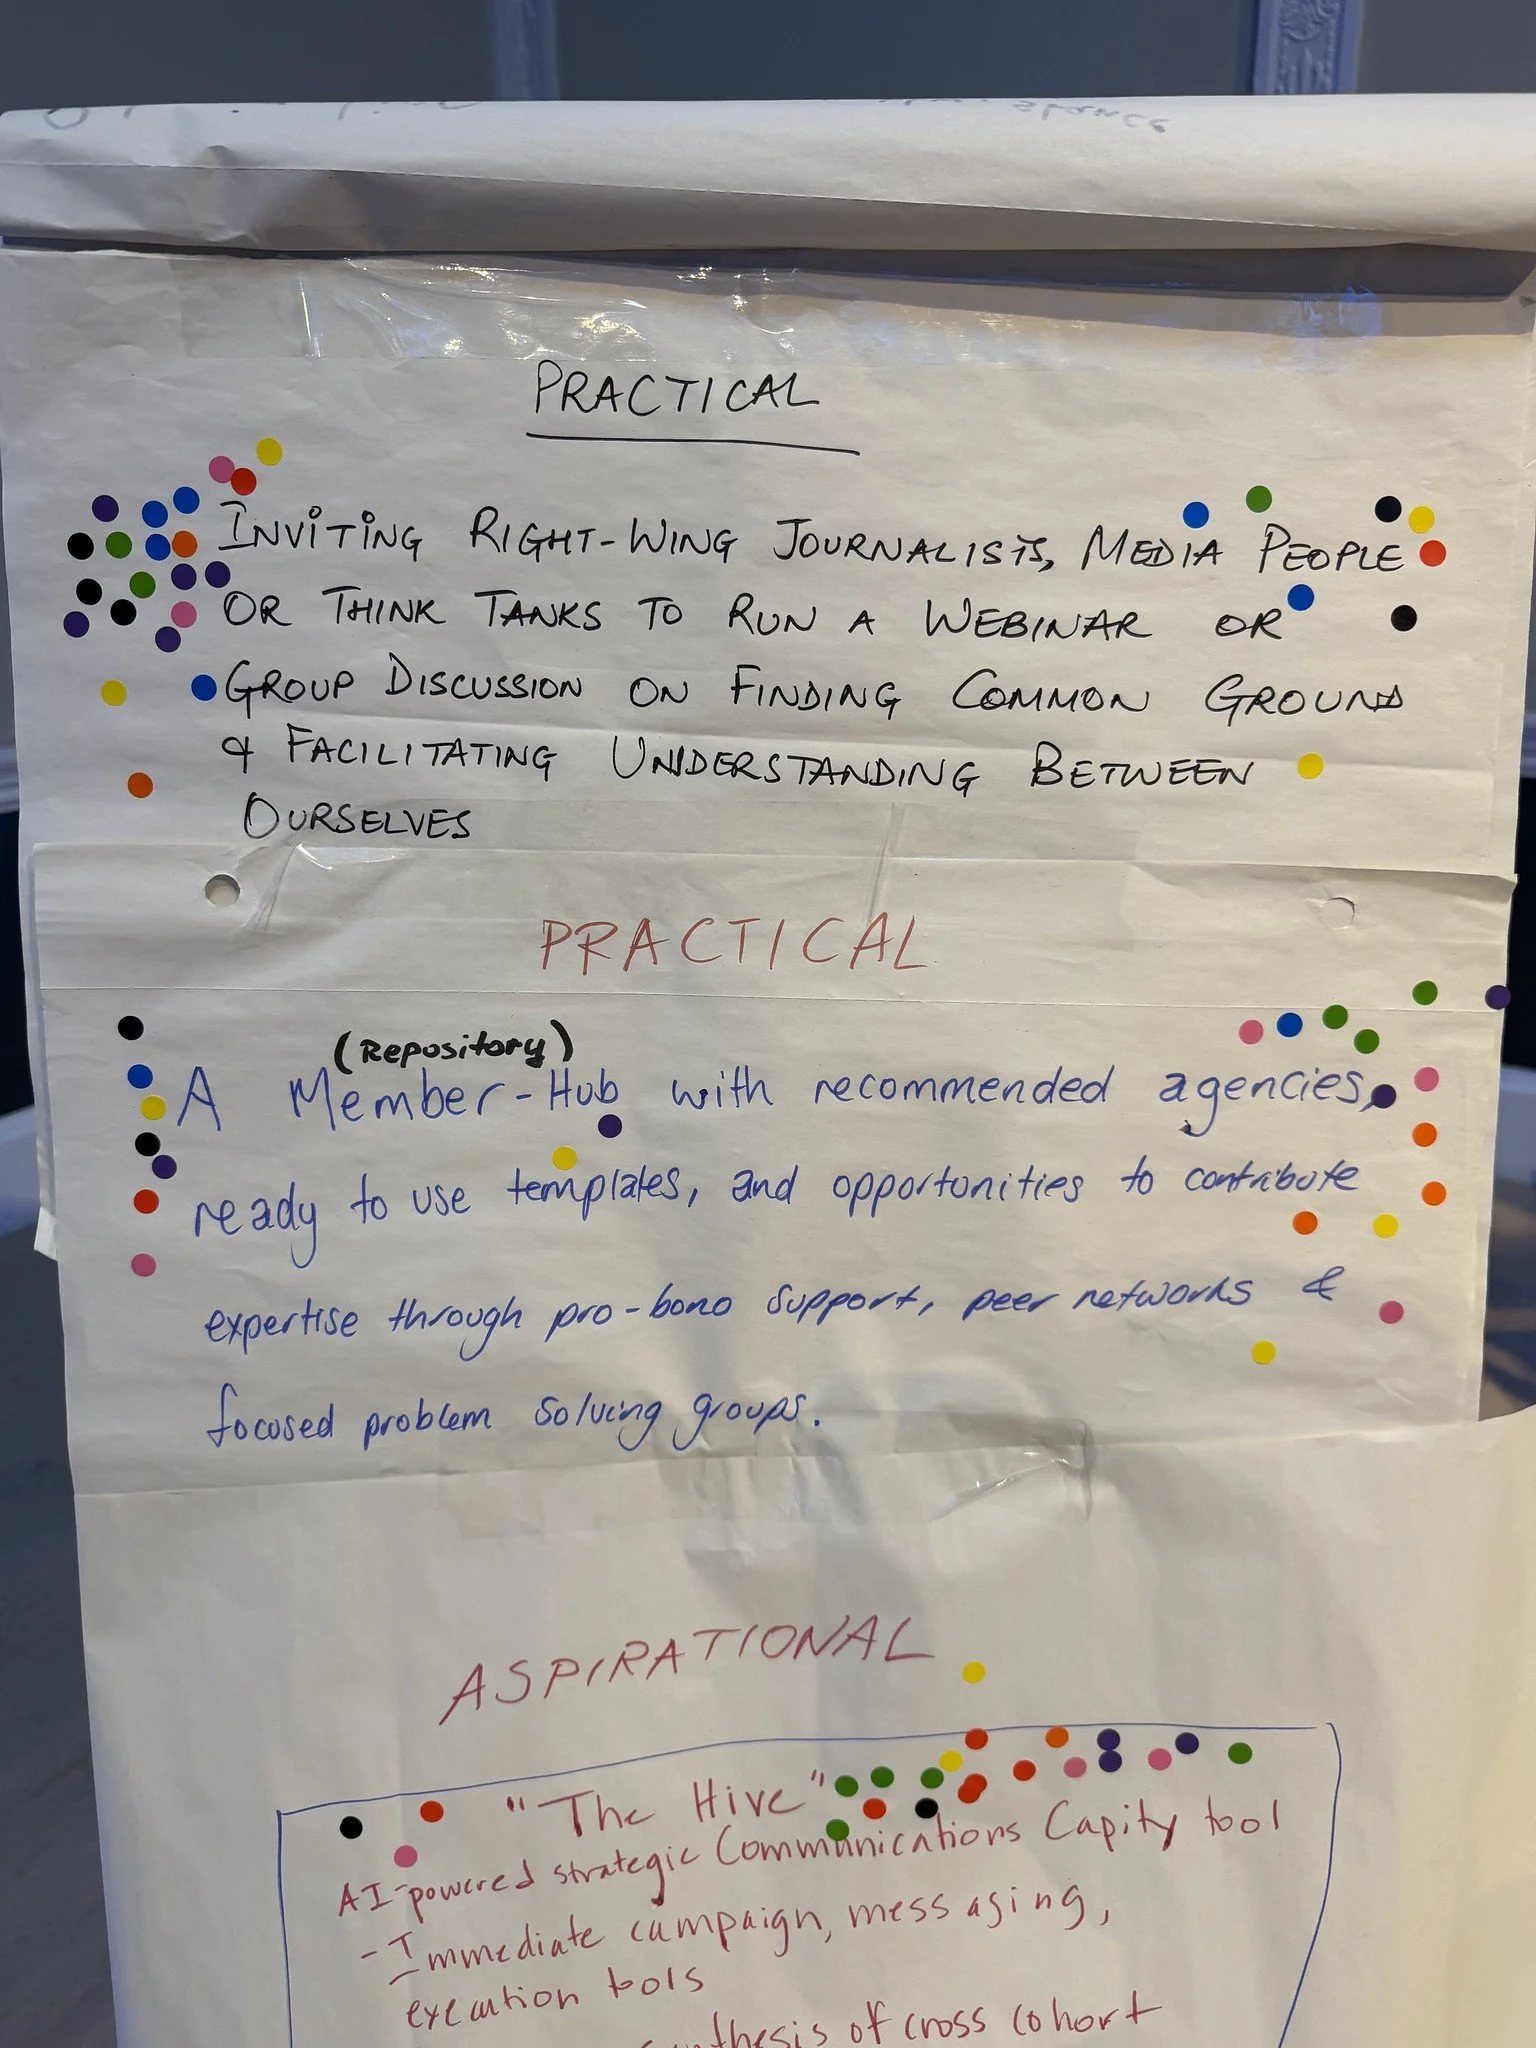 stance
PRACTICAL
INVITING RIGHT-WING JOURNALISTS, MEDIA PEOPLE
OR THINK TANKS TO RUN A WEBINAR OR
GROUP DISCUSSION ON FINDING COMMON GROUND
& FACILITATING UNDERSTANDING BETWEEN
OURSELVES
PRACTICAL
(Repository)
A Member-Hub with recommended agencies,
ready to use templates, and opportunities to contribute
expertise through pro-bono support, peer networks &
focused problem solving groups.
ASPIRATIONAL
"The Hive"
AI-powered strategic Communications Capity tool
- Immediate campaign, messaging,
execution tools
synthesis of cross cohort